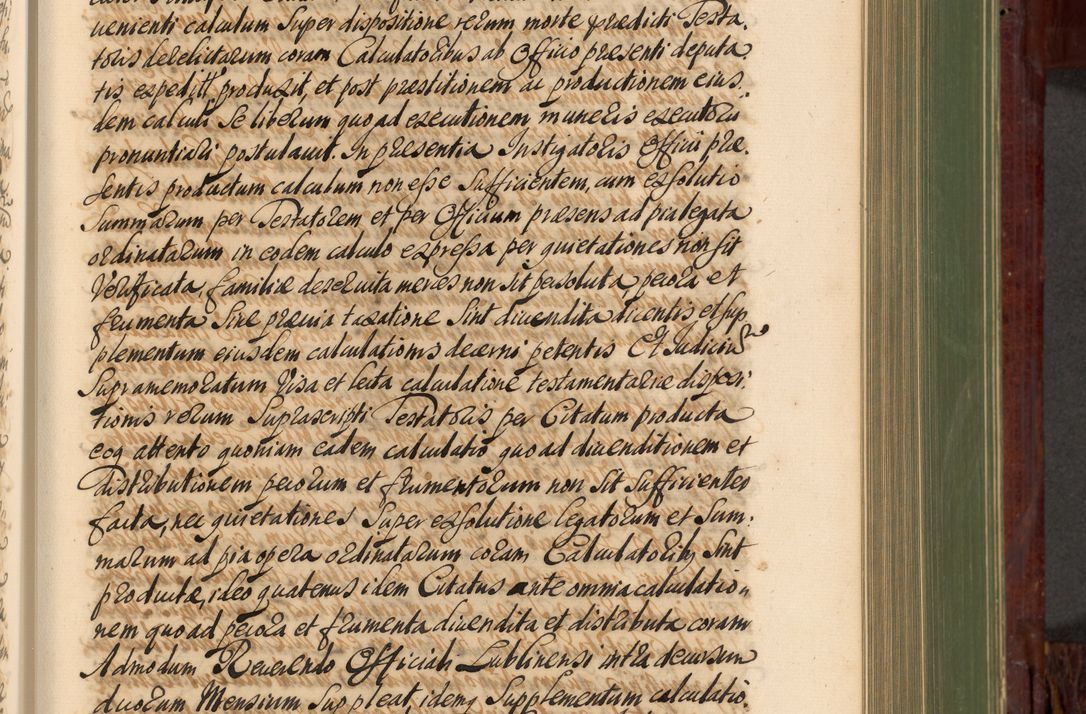 uenienti calculum Super dispositione rerum morte prædicti Testa,
toris derelictarum coram Calculatoribus ab Officio præsenti deputa
tis expeditt produxit, et post præstitionem ac productionem eius,
dem calculi Se liberum quoad executionem muneris executoris
pronuntiari postulauit. In præsentia Instigatoris Officii præ,
sentis productum calculum non esse Sufficientem, cum exsolutio
Summarum per Testatorem et per Officium præsens ad pia legata
ordinatarum in eodem calculo expressa per quietationes non sit
Verificata, familiæ deseruita merces non sit persoluta, pecora et
frumenta Sine præuia taxatione Sint diuendita dicentis et Sup
plementum eiusdem calculationis decerni petentis Et Judicium
Supramemoratum Visa et lecta calculatione testamentariæ disposi,
tionis rerum Suprascripti Testatoris per Citatum producta
eoq attento quoniam eadem calculatio quoad diuenditionem et
distributionem pecorum et frumentorum non Sit Sufficienter
facta, nec quietationes Super exsolutione legatorum et Sum,
marum ad pia opera ordinatarum coram Calculatoribus Sint
productæ, ideo quatenus idem Citatus ante omnia calculatio,
nem quoad pecora et frumenta diuendita et distributa coram
Admodum Reuerendo Officiali Lublinensi intra decursum
duorum Mensium Suppleat, idemq Supplementum calculatio,